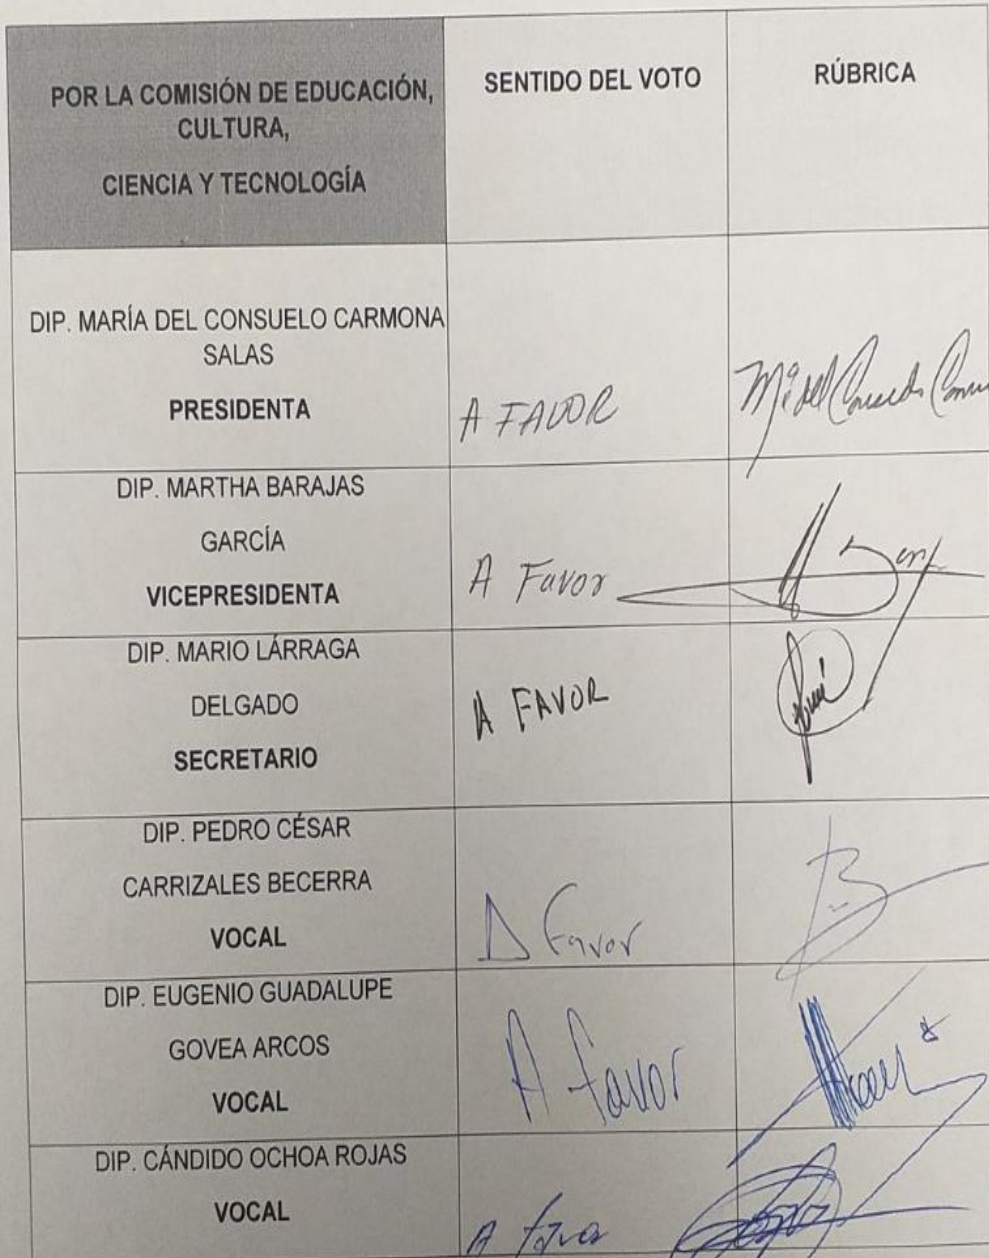 POR LA COMISIÓN DE EDUCACIÓN,
CULTURA,
CIENCIA Y TECNOLOGÍA
SENTIDO DEL VOTO
RÚBRICA
DIP. MARÍA DEL CONSUELO CARMONA
SALAS
PRESIDENTA
A FAVOR
DIP. MARTHA BARAJAS
GARCÍA
VICEPRESIDENTA
A Favor
DIP. MARIO LÁRRAGA
DELGADO
SECRETARIO
A FAVOR
DIP. PEDRO CÉSAR
CARRIZALES BECERRA
VOCAL
A Favor
DIP. EUGENIO GUADALUPE
GOVEA ARCOS
VOCAL
A favor
DIP. CÁNDIDO OCHOA ROJAS
VOCAL
A favor